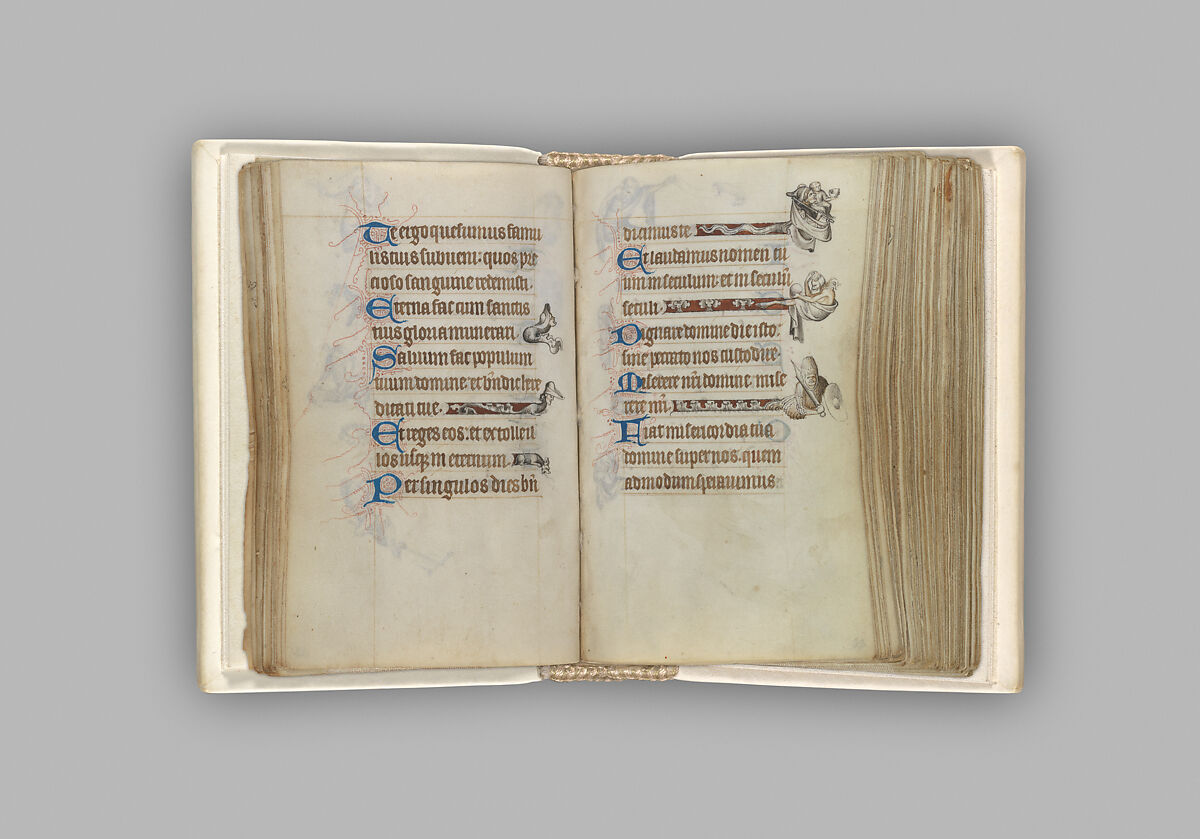 Te ergo quesumus famu
lis tuis subueni: quos pre
cioso sanguine redemisti.
Eterna fac cum sanctis
tuis gloria munerari.
Saluum fac populum
tuum domine: et bn̄dic here
ditati tue.
Et rege eos: et extolle il
los usq; in eternum.
Per singulos dies bn̄
dicimus te
Et laudamus nomen tu
um in seculum: et in seculū
seculi.
Dignare domine die isto:
sine peccato nos custodire.
Miserere nr̄i domine: mise
rere nr̄i.
Fiat misericordia tua
domine super nos: quem
admodum sperauimus